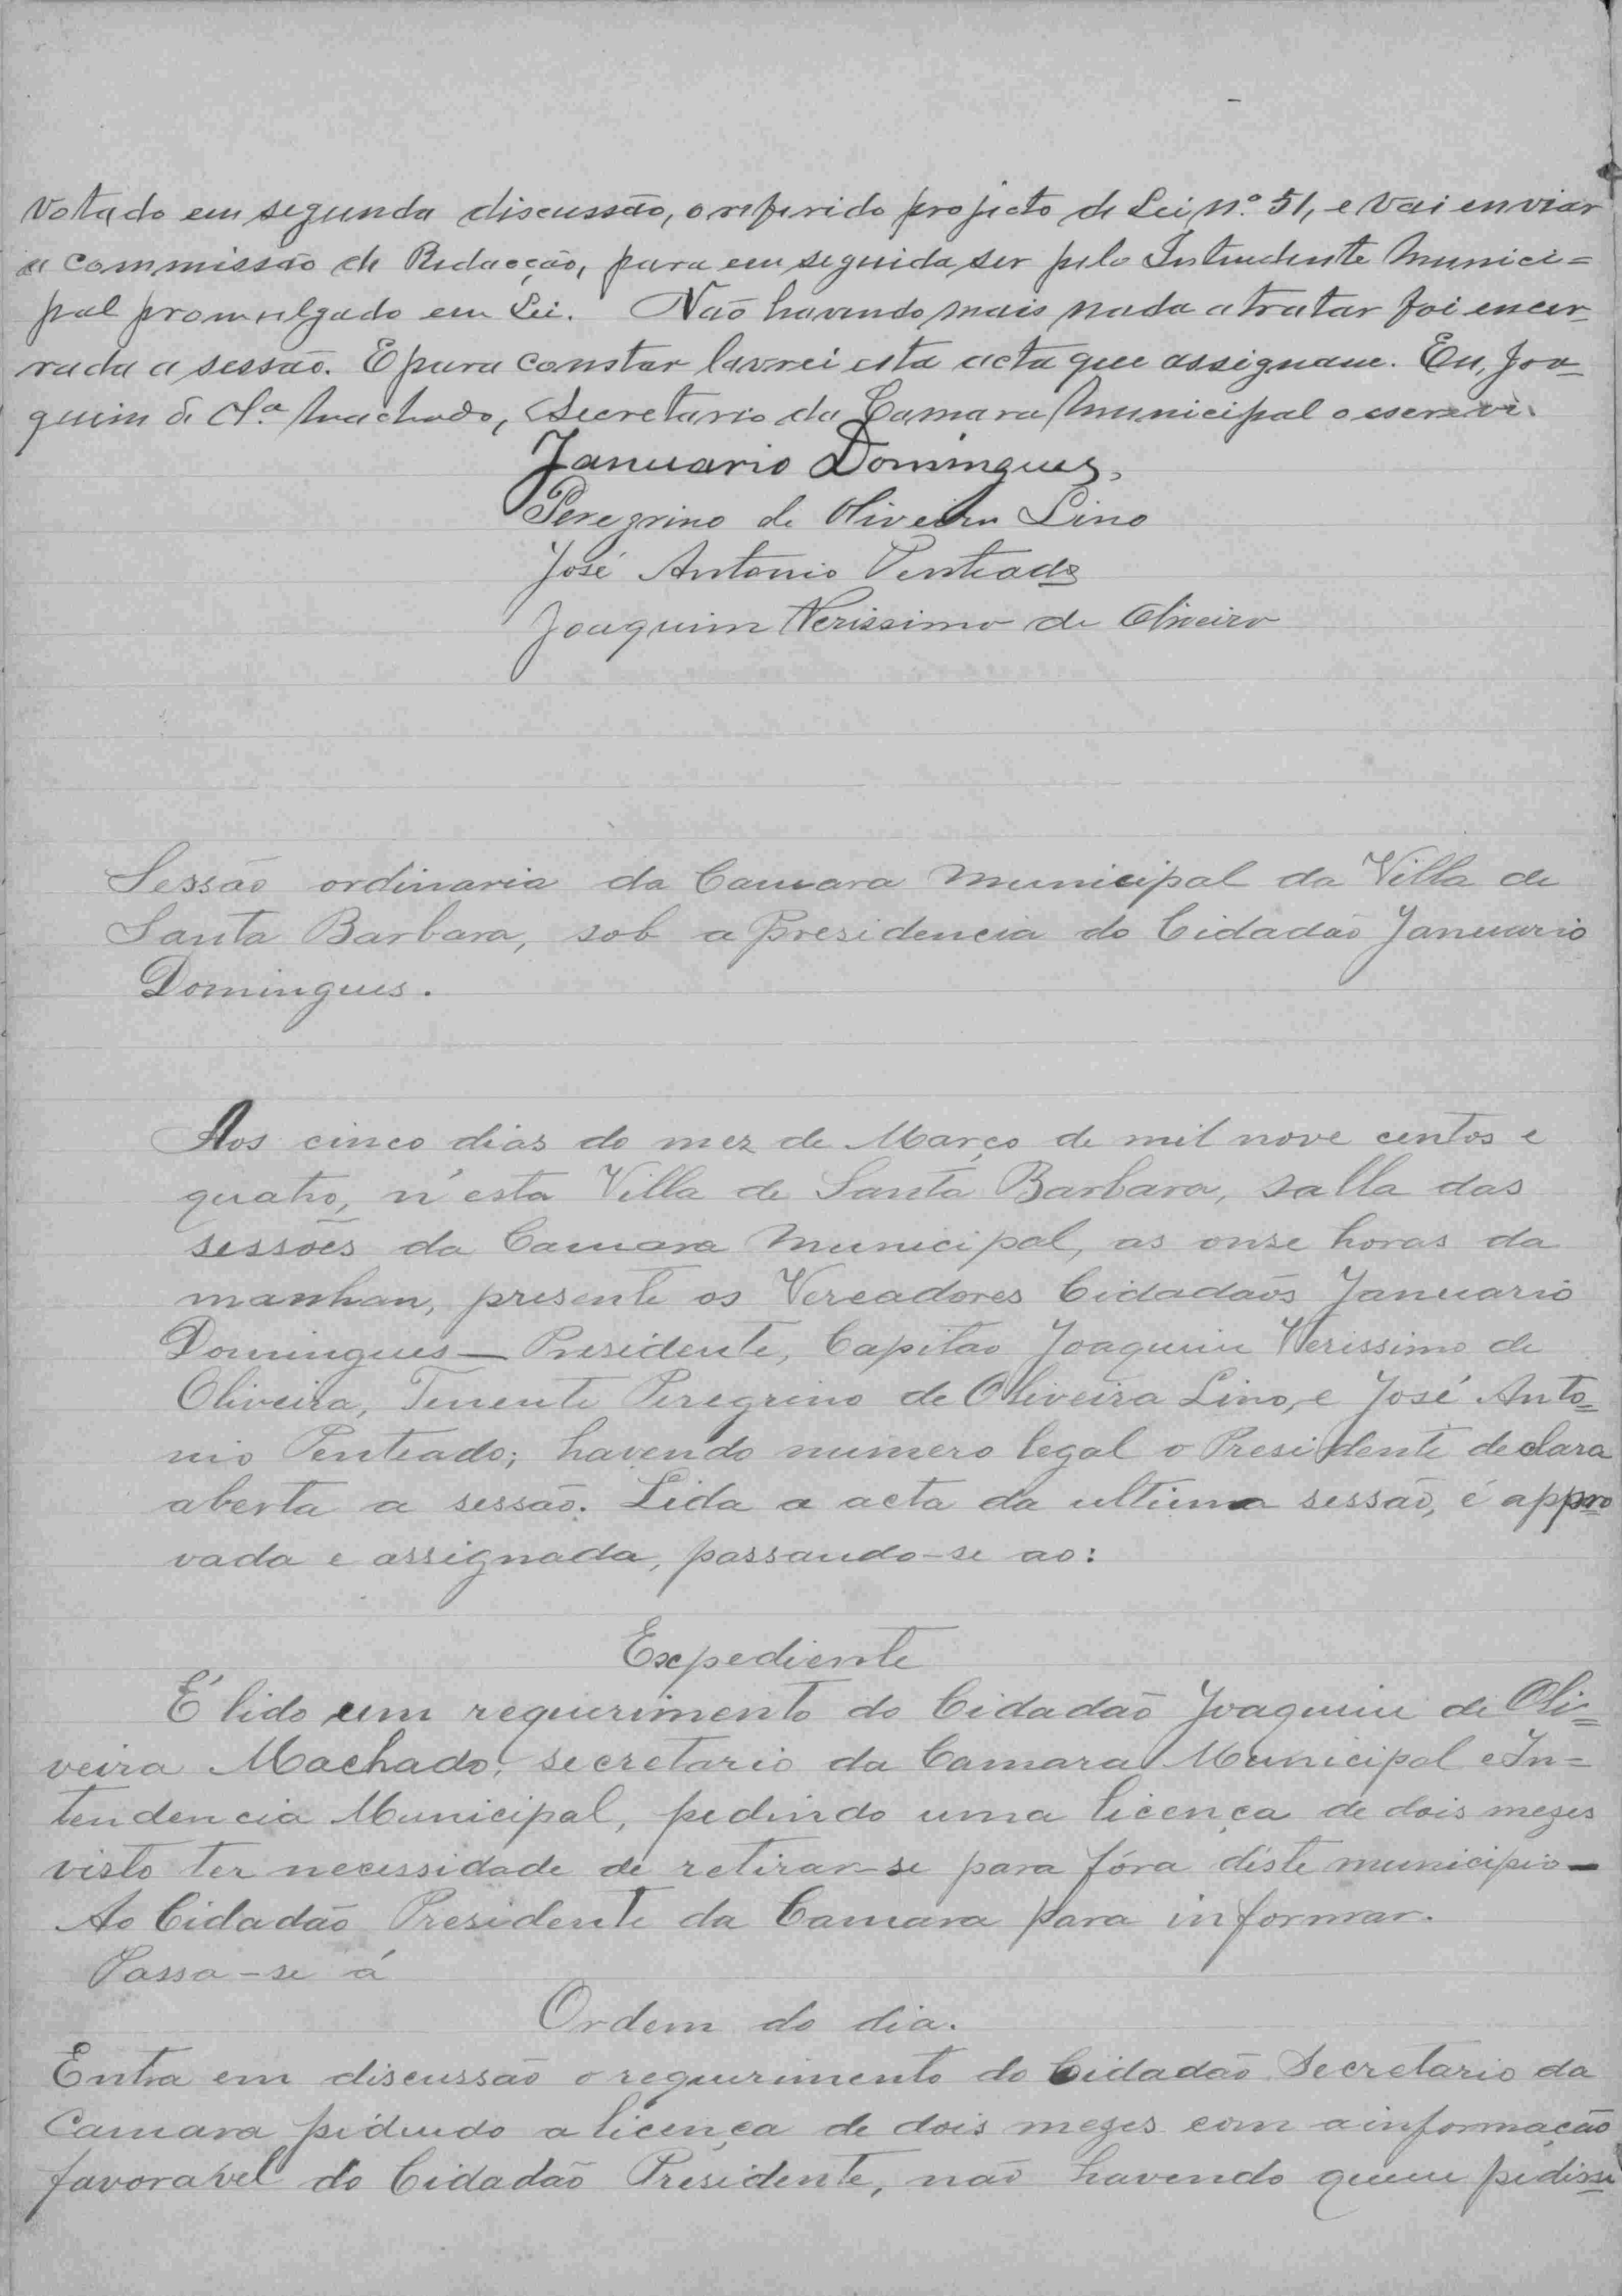 votado em segunda discussão, o referido projecto de Lei, n.º 51, e vai enviar
a commissão de Redacção, para em seguida ser pelo Intendente Munici=
pal promulgado em Lei. Não havendo mais nada a tratar foi encer-
rada a sessão. E para constar lavrei esta acta que assignam. Eu, Joa-
quim de Ol.ª Machado, Secretario da Camara Municipal o escrevi.
Januario Domingues.
Peregrino de Oliveira Lino
José Antonio Penteado
Joaquim Verissimo de Oliveira
Sessão ordinaria da Camara Municipal da Villa de
Santa Barbara, sob a presidencia do Cidadão Januario
Domingues.
Aos cinco dias do mez de Março de mil nove centos e
quatro, n'esta Villa de Santa Barbara, salla das
sessões da Camara Municipal, as onse horas da
manhan, presente os Vereadores Cidadãos Januario
Domingues — Presidente, Capitão Joaquim Verissimo de
Oliveira, Tenente Peregrino de Oliveira Lino, e José Anto=
nio Penteado; havendo numero legal o Presidente declara
aberta a sessão. Lida a acta da ultima sessão, é appro
vada e assignada, passando-se ao:
Expediente
É lido um requerimento do Cidadão Joaquim de Oli=
veira Machado, secretario da Camara Municipal e In=
tendencia Municipal, pedindo uma licença de dois mezes
visto ter necessidade de retirar-se para fóra déste municipio —
Ao Cidadão Presidente da Camara para informar.
Passa-se á
Ordem do dia.
Entra em discussão o requerimento do Cidadão Secretario da
Camara pedindo a licença de dois mezes com a informação
favoravel do Cidadão Presidente, não havendo quem pedisse